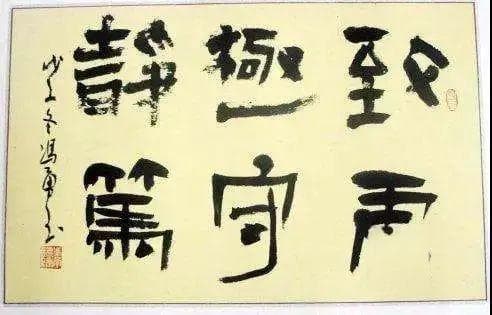 致虛
極守
靜篤